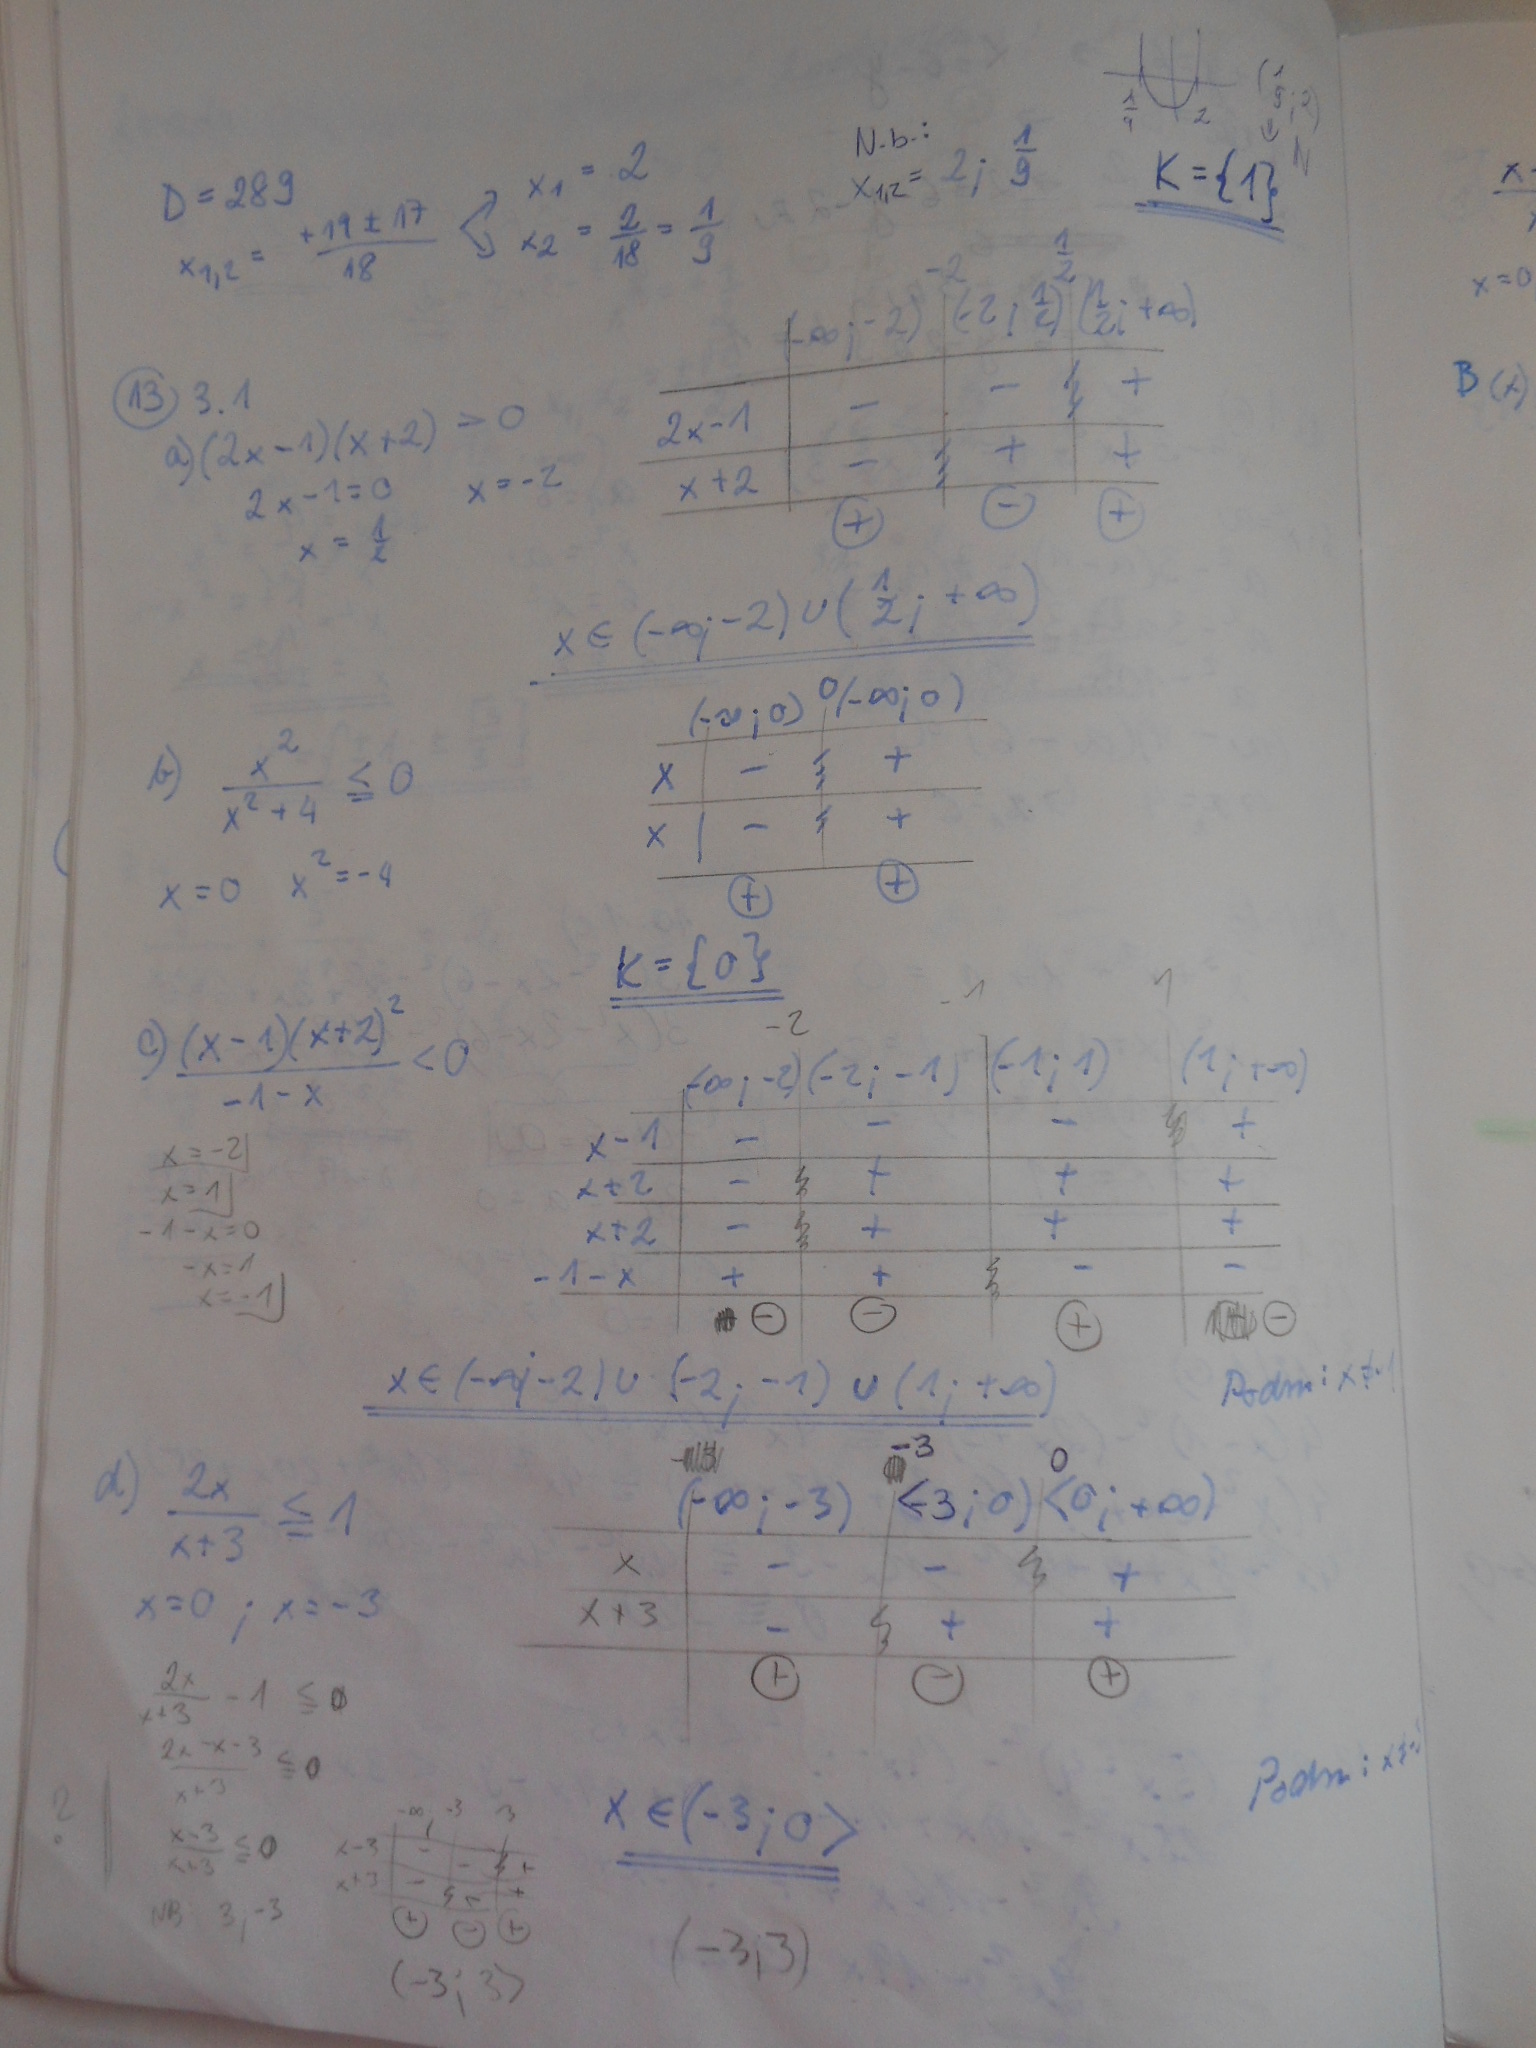 1/9 2
(1/9 ; 2)
↓
N
D = 289
x1,2 = +19 ± 17 / 18
x1 = 2
x2 = 2/18 = 1/9
N.b.:
x1,2 = 2; 1/9
K = {1}
13 3.1
a) (2x-1)(x+2) > 0
2x-1=0 x=-2
x = 1/2
-2 1/2
(-∞;-2) (-2; 1/2) (1/2; +∞)
2x-1 - - +
x+2 - + +
+ - +
x ∈ (-∞;-2) ∪ (1/2; +∞)
b) x² / x²+4 ≤ 0
x=0 x²=-4
(-∞;0) 0 (-∞;0)
x - +
x - +
+ +
K = {0}
c) (x-1)(x+2)² / -1-x < 0
x=-2
x=1
-1-x=0
-x=1
x=-1
-2 -1 1
(-∞;-2) (-2;-1) (-1;1) (1;+∞)
x-1 - - - +
x+2 - + + +
x+2 - + + +
-1-x + + - -
- - + -
x ∈ (-∞;-2) ∪ (-2;-1) ∪ (1;+∞)
Podm: x≠-1
d) 2x / x+3 ≤ 1
x=0 ; x=-3
-3 0
(-∞;-3) <-3;0) <0;+∞)
x - - +
x+3 - + +
+ - +
2x/x+3 - 1 ≤ 0
2x-x-3 / x+3 ≤ 0
x-3 / x+3 ≤ 0
NB 3,-3
?
-∞; -3 3
x-3 - - +
x+3 - + +
+ - +
(-3;3>
x ∈ (-3;0>
(-3;3)
Podm: x≠
x=0
B (x)